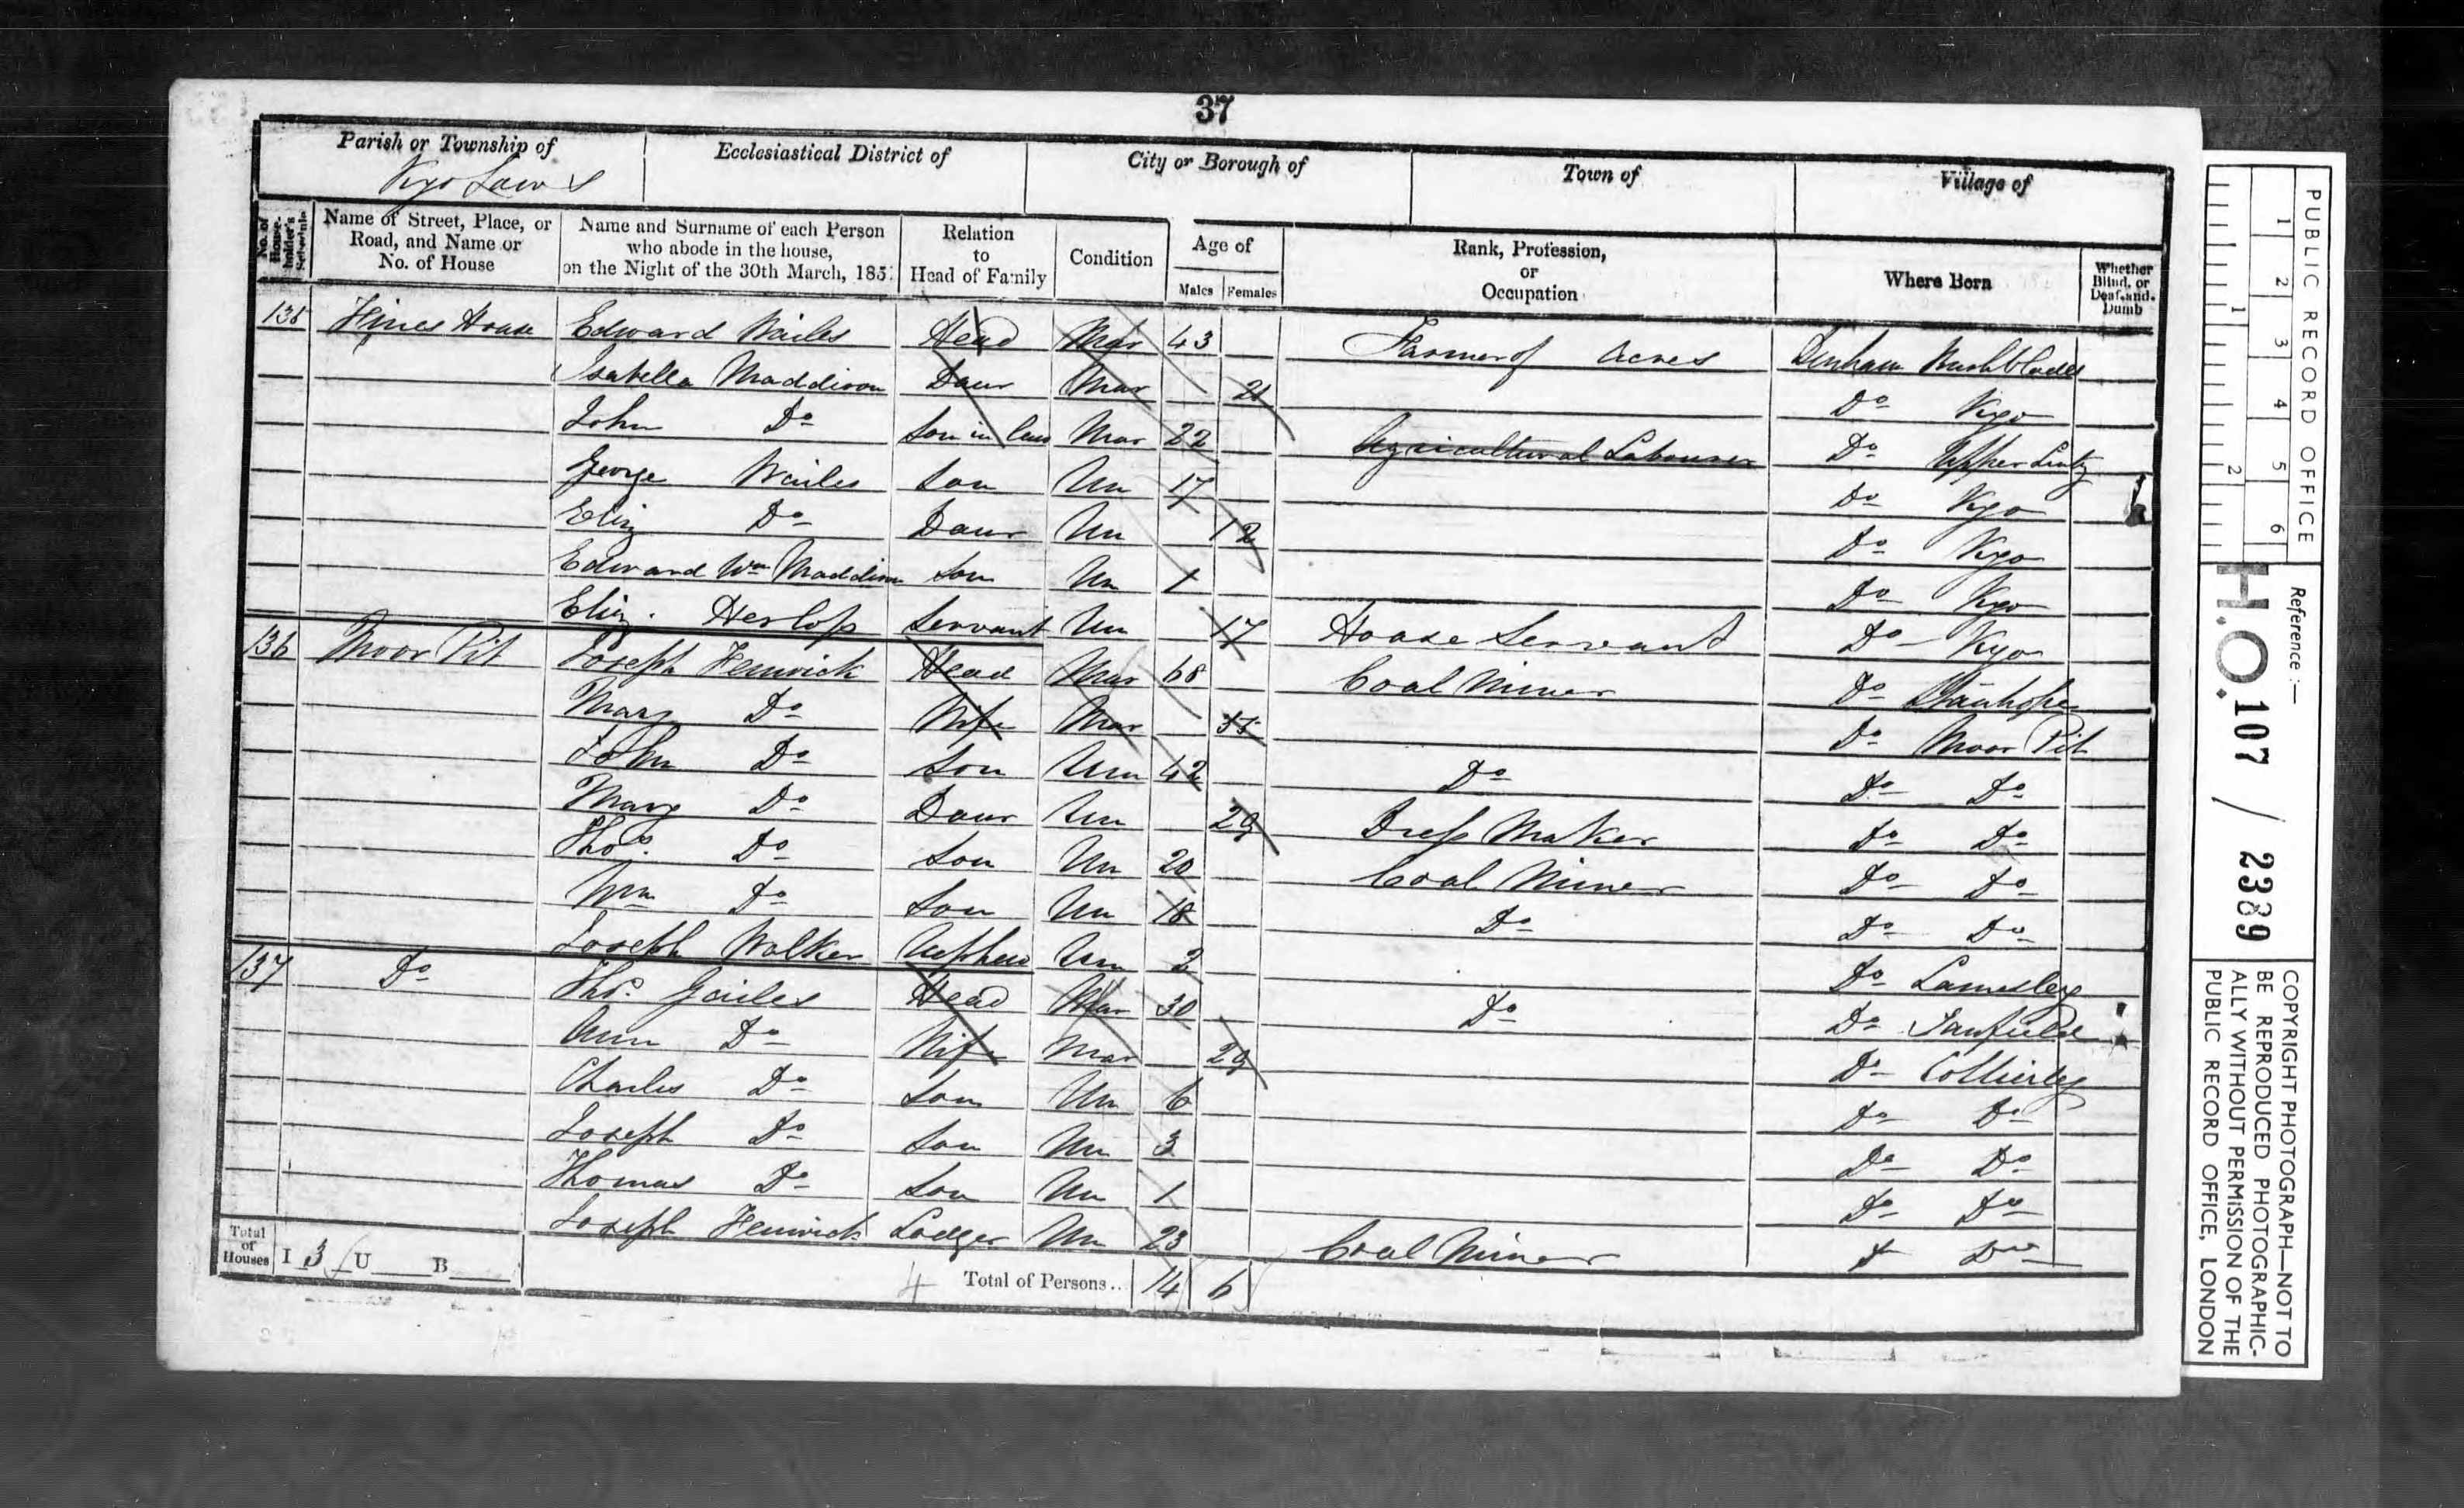 37
Parish or Township of Ecclesiastical District of City or Borough of Town of Village of
Kyo Laws
No. of House-holder's Schedule Name of Street, Place, or Road, and Name or No. of House Name and Surname of each Person who abode in the house, on the Night of the 30th March, 185 Relation to Head of Family Condition Age of Males Females Rank, Profession, or Occupation Where Born Whether Blind, or Deaf-and-Dumb
135 Hines House Edward Wailes Head Mar 43 Farmer of Acres Durham
Isabella Maddison Daur Mar 21 Do Kyo
John Do Son in law Mar 22 Agricultural Labourer Do Upper Lintz
George Wailes Son Un 17 Do Kyo
Eliz Do Daur Un 12 Do Kyo
Edward Wm Maddison Son Un 1 Do Kyo
Eliz. Heslop Servant Un 17 House Servant Do Kyo
136 Moor Pit Joseph Fenwick Head Mar 68 Coal Miner Do Stanhope
Mary Do Wife Mar Do Moor Pit
John Do Son Un 42 Do Do Do
Mary Do Daur Un 29 Dress Maker Do Do
Thos. Do Son Un 20 Coal Miner Do Do
Wm Do Son Un 18 Do Do Do
Joseph Walker Nephew Un 2 Do Lamesley
137 Do Thos. Gailes Head Mar 30 Do Do Tanfield
Ann Do Wife Mar 29 Do Collierley
Charles Do Son Un 6 Do Do
Joseph Do Son Un 3 Do Do
Thomas Do Son Un 1 Do Do
Joseph Fenwick Lodger Un 23 Coal Miner Do
Total of Houses I 3 U B 4 Total of Persons.. 14 6
PUBLIC RECORD OFFICE
1 2 3 4 5 6
1 2
Reference:-
H.O. 107 / 2389
COPYRIGHT PHOTOGRAPH—NOT TO
BE REPRODUCED PHOTOGRAPHIC-
ALLY WITHOUT PERMISSION OF THE
PUBLIC RECORD OFFICE, LONDON